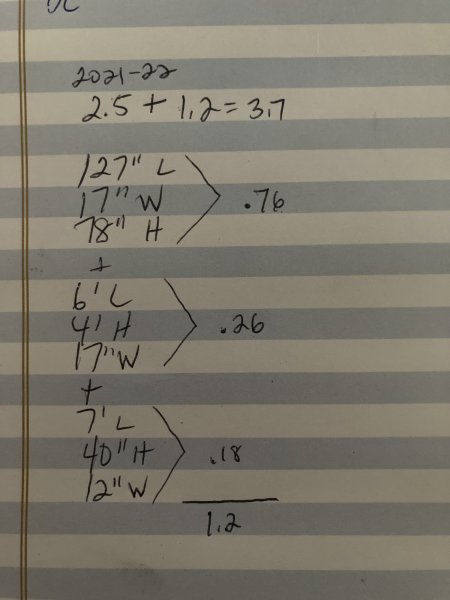 2021-22
2.5 + 1.2 = 3.7
127" L
17" W
78" H
.76
+
6' L
4' H
17" W
.26
+
7' L
40" H
12" W
.18
1.2